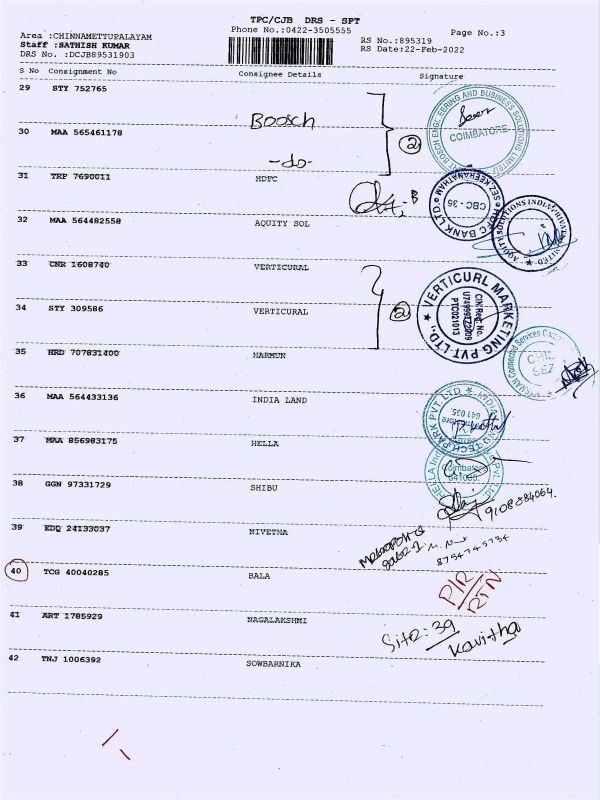 TPC/CJB DRS - SPT
Area :CHINNAMETTUPALAYAM Phone No.:0422-3505555 Page No.:3
Staff :SATHISH KUMAR RS No.:895319
DRS No. :DCJB89531903 RS Date:22-Feb-2022
S No Consignment No Consignee Details Signature
29 STY 752765 Boosch
30 MAA 565461178 -do- 2
COIMBATORE
31 TRP 7690011 HDFC
HDFC BANK LTD. SEZ KEERANATHAM
CBC - 35
32 MAA 564482558 AQUITY SOL
AQUITY SOLUTIONS INDIA PRIVATE LIMITED
33 CNR 1608740 VERTICURAL
34 STY 309586 VERTICURAL 2
VERTICURL MARKETING PVT. LTD.,
CIN Reg. No.
PTC021013
35 HRD 707831400 HARMUN
SEZ
36 MAA 564433136 INDIA LAND
641 035.
37 MAA 856983175 HELLA
Coimbatore
641035.
38 GGN 97331729 SHIBU
39 EDQ 24133037 NIVETHA
8754745734
40 TCG 40040285 BALA
RTN
41 ART 1785929 NAGALAKSHMI
Site: 39
Kavitha
42 TNJ 1006392 SOWBARNIKA